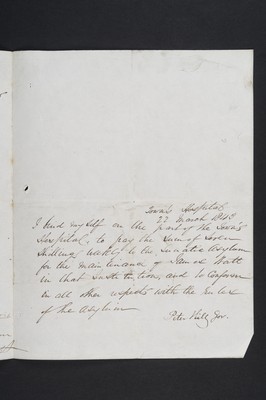 Town's Hospital
22 March 1843
I bind myself on the part of the Town's
Hospital, to pay the Sum of Seven
Shillings weekly to the Lunatic Asylum
for the maintenance of James
in that Institution, and to Conform
in all other respects with the Rules
of the Asylum
Peter Hill, Gov.